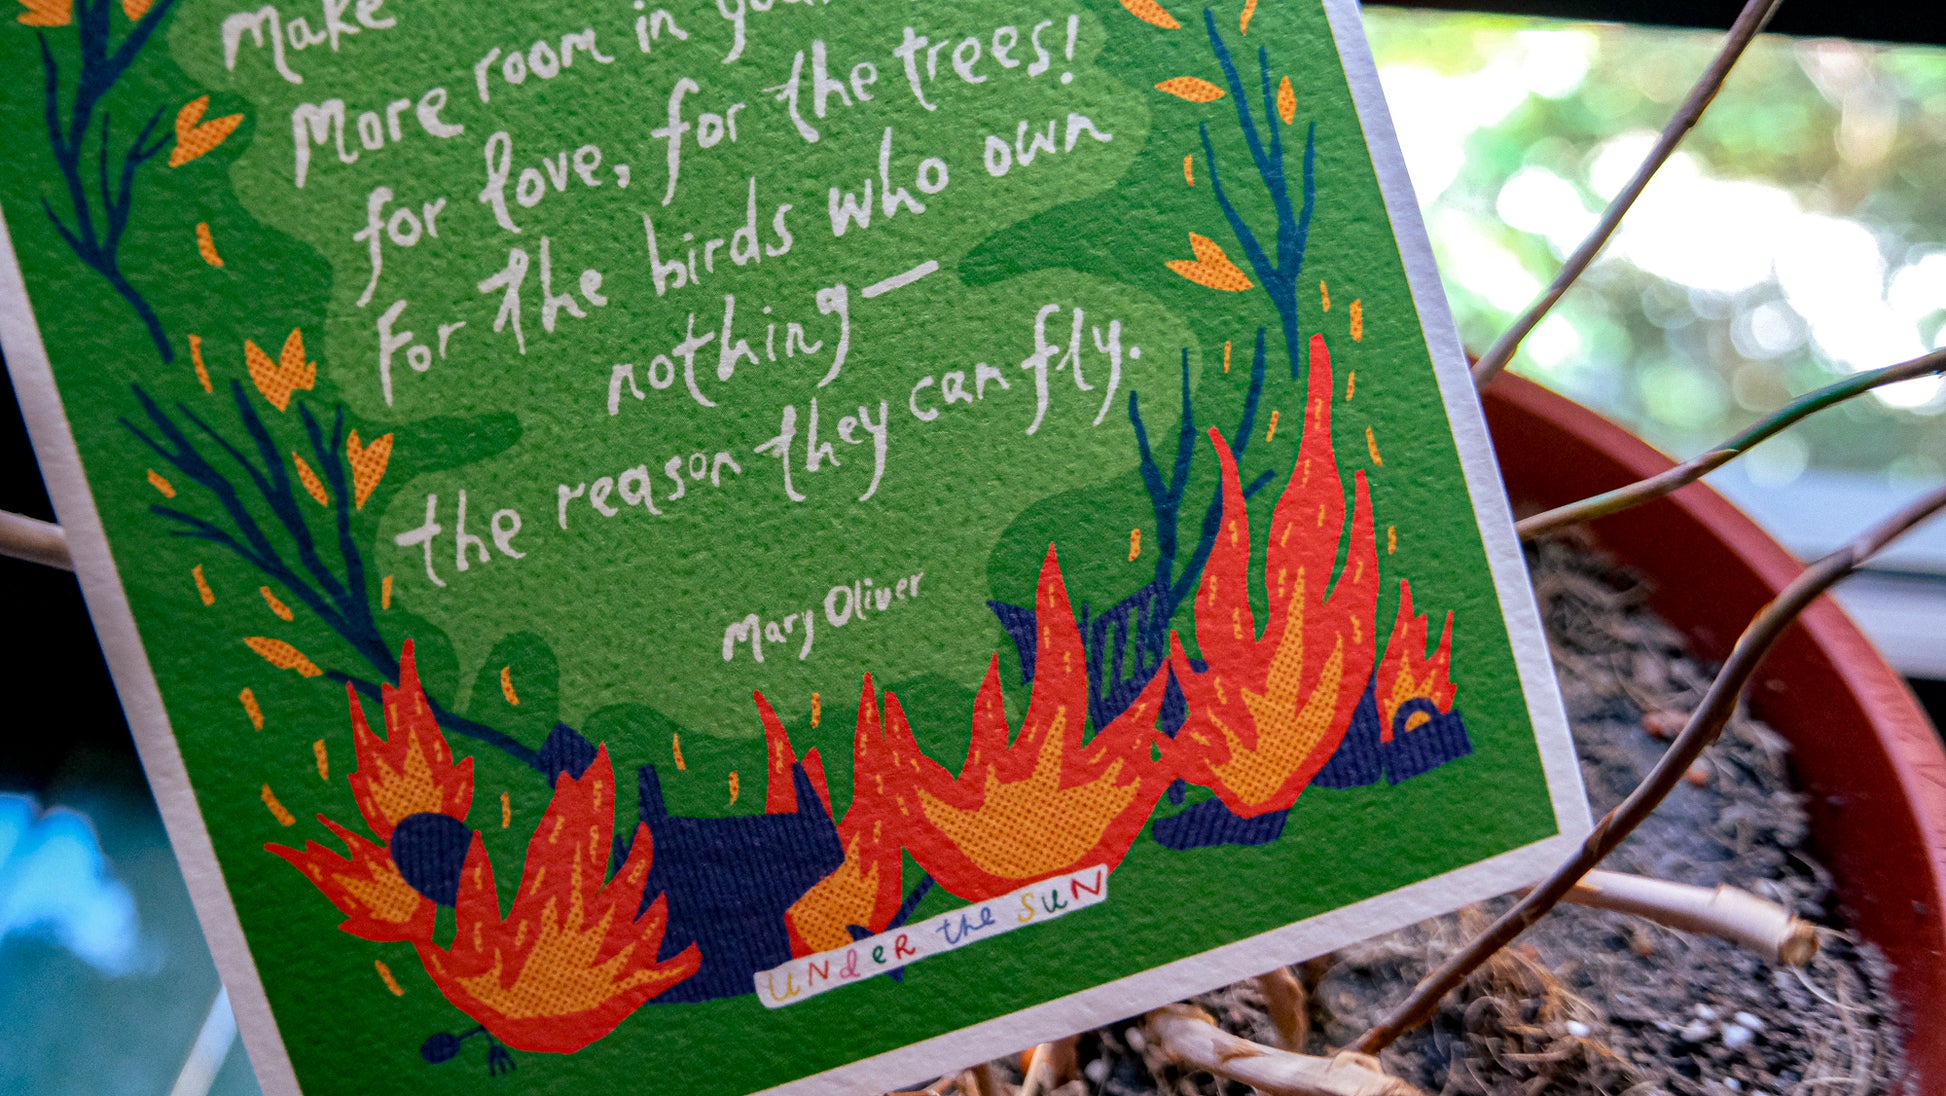 Make
More room in your
for love, for the trees!
For the birds who own
nothing—
the reason they can fly.
Mary Oliver
UNdeR the SUN